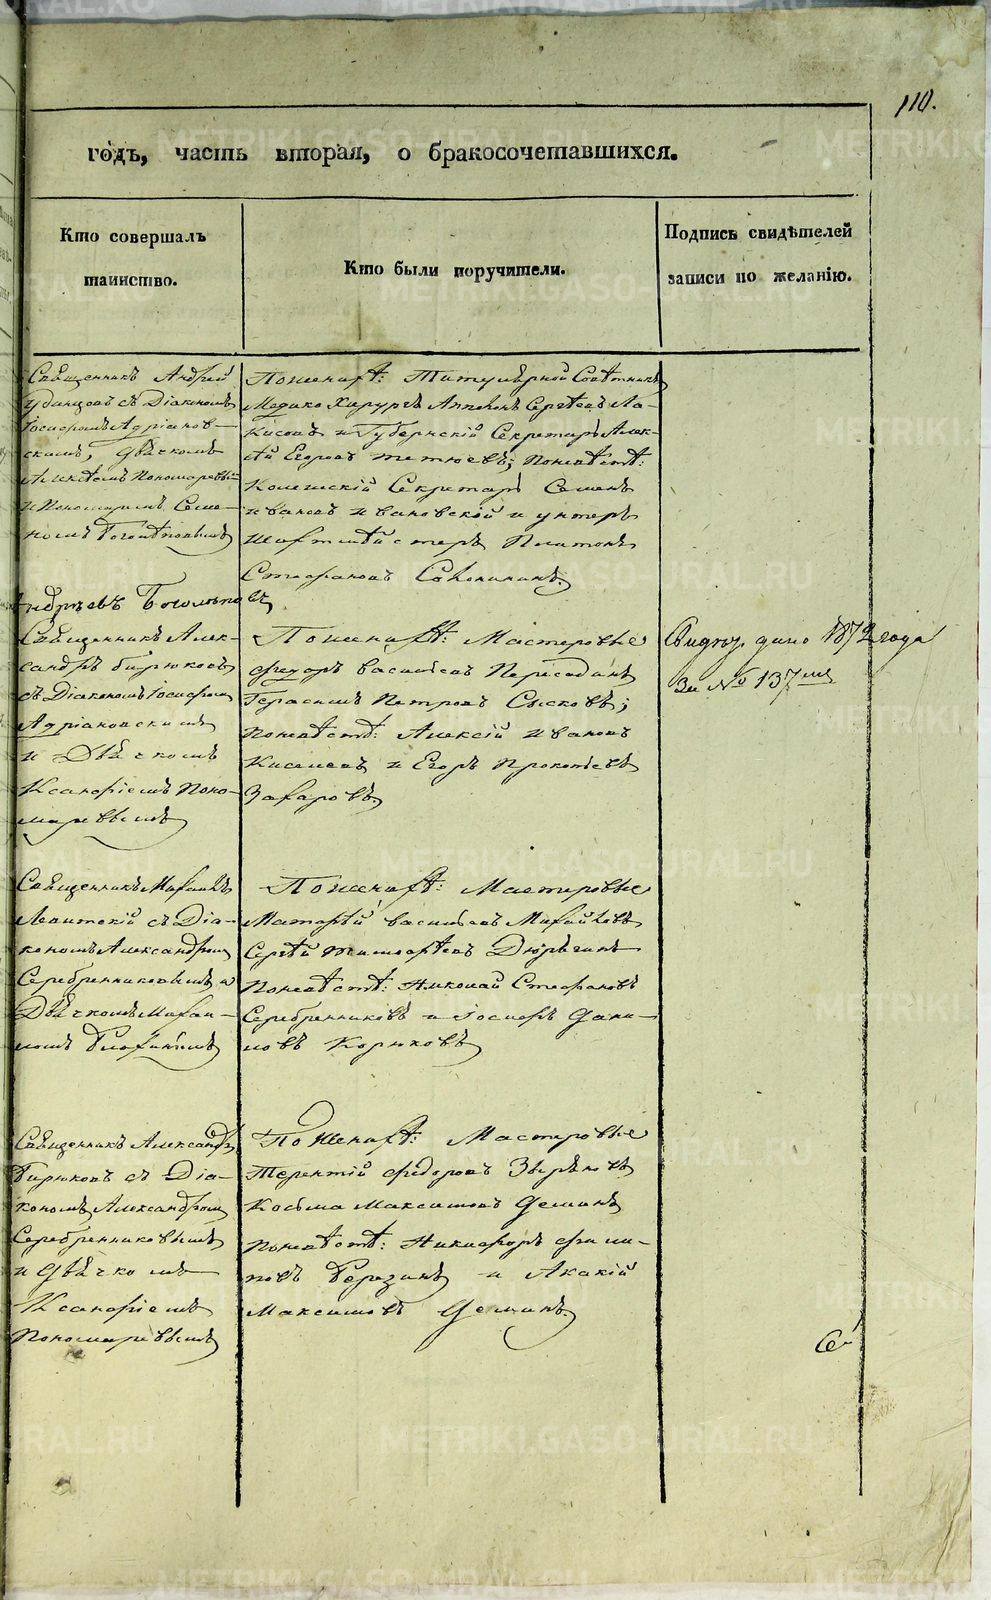 110.
годъ, часть вторая, о бракосочетавшихся.
Кто совершалъ
таинство.
Кто были поручители.
Подпись свидѣтелей
записи по желанію.
Священникъ Андрей
Удинцовъ съ Діакономъ
Іосифомъ Адріанов-
скимъ, Дьячкомъ
Алексѣемъ Пономаревы-
и Пономаремъ Семе-
номъ
Андреевъ
По женихѣ: Титулярной Совѣтникъ
Медико Хирургъ Сергѣевъ
и Губернскій Секретарь Алек-
сѣй Егоровъ по невѣстѣ:
Колежскій Секретарь Семенъ
Ивановъ Ивановской и унтеръ
шихтмейстеръ Платонъ
Стефановъ
Священникъ Алек-
сандръ Бирюковъ
съ Діакономъ Іосифомъ
Адріановскимъ
и Дьячкомъ
Ксанфіемъ Поно-
маревымъ
По женихѣ: Мастеровые
Федоръ Васильевъ
Герасимъ Петровъ Сысковъ;
По невѣстѣ: Алексій Ивановъ
Киселевъ и Егоръ Прокопьевъ
Захаровъ.
дано 1872 года
За № 137
Священникъ Михаилъ
Левитскій съ Діа-
кономъ Александромъ
Серебренниковымъ и
Дьячкомъ Михаи-
ломъ
По женихѣ: Мастеровые
Матвѣй Васильевъ Михайловъ
Сергѣй Тимофѣевъ Дюрягинъ
По невѣстѣ: Николай Стефановъ
Серебренниковъ и Іосифъ Дани-
ловъ Корюковъ
Священникъ Александръ
Бирюковъ съ Діа-
кономъ Александромъ
Серебренниковымъ
и Дьячкомъ
Ксанфіемъ
Пономаревымъ
По женихѣ: Мастеровые
Терентій Федоровъ Звѣревъ
Козьма Максимовъ Деминъ
По невѣстѣ: Никифоръ Фили-
повъ Березинъ и Акакій
Максимовъ Деминъ.
METRIKI.GASO-URAL.RU